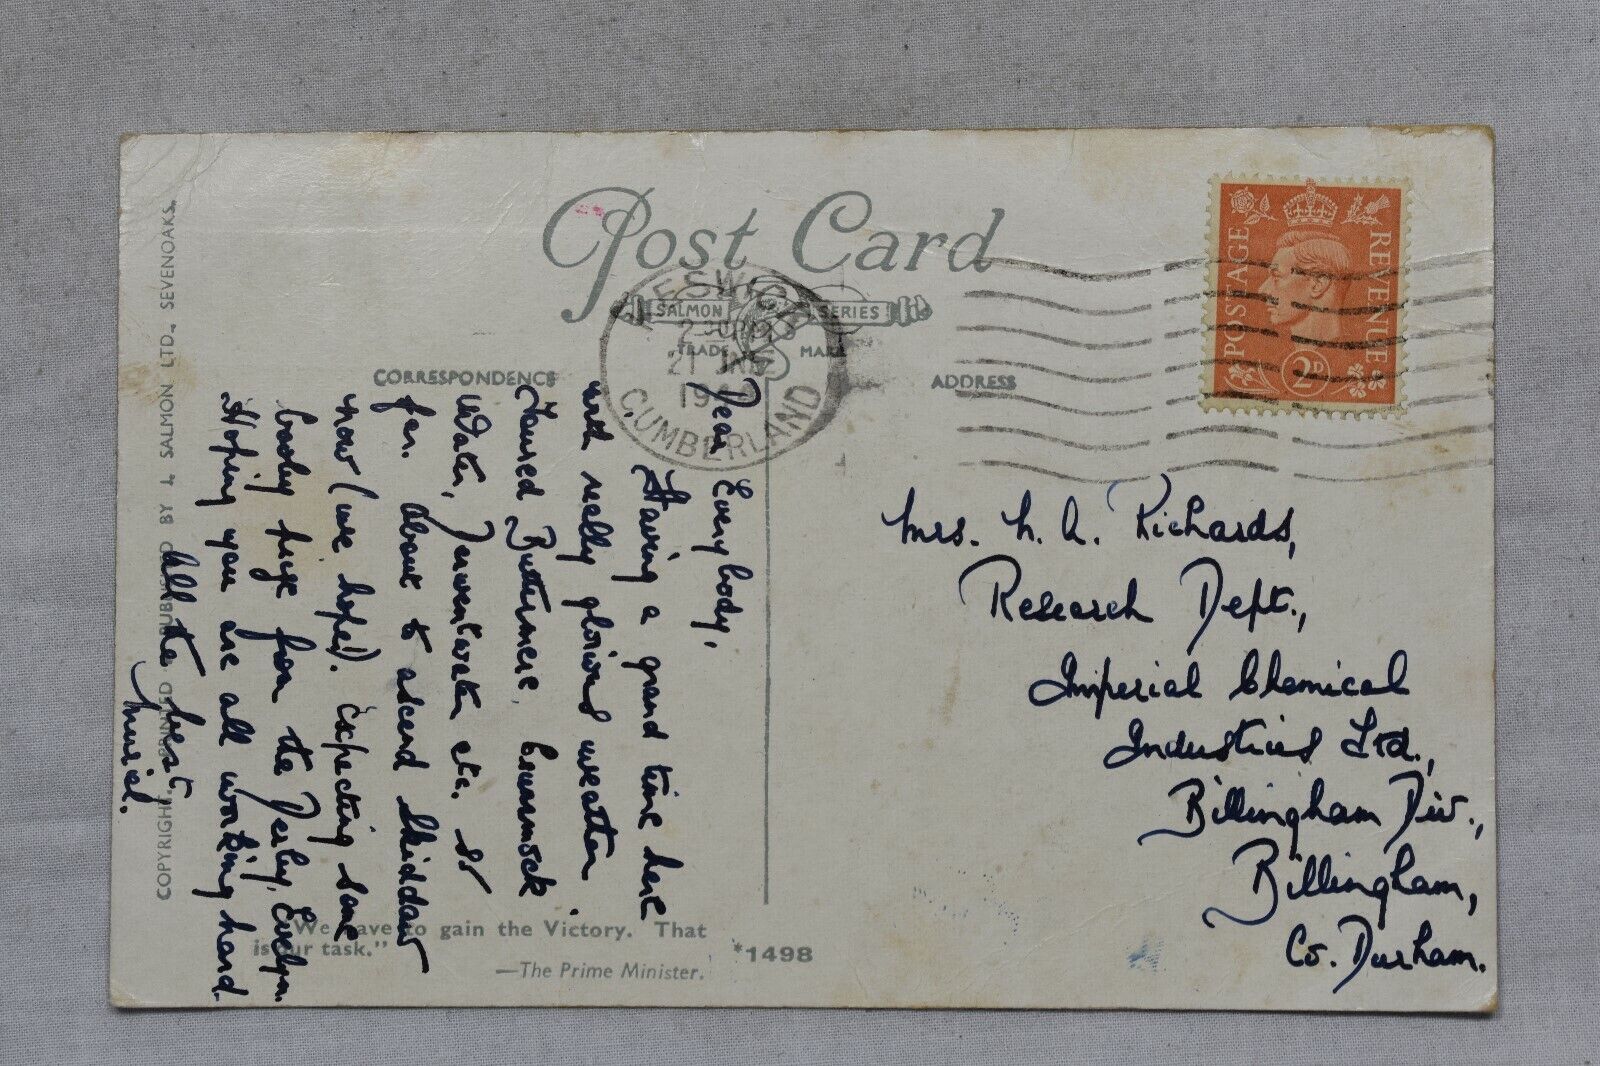 Post Card
SALMON SERIES
TRADE MARK
CORRESPONDENCE
ADDRESS
KESWICK
21 JNE
CUMBERLAND
POSTAGE
REVENUE
2D
Dear Everybody,
Having a grand time here
and really glorious weather.
Toured Buttermere, Crummock
Water, Derwentwater etc. so
far. About to ascend Skiddaw
now (we hope!). Expecting some
booby prize from the Derby, Evelyn.
Hoping you are all working hard.
All the best
Muriel.
Mrs. N. A. Richards,
Research Dept.,
Imperial Chemical
Industries Ltd.,
Billingham Div.,
Billingham,
Co. Durham.
"We have to gain the Victory. That
is our task."
—The Prime Minister.
*1498
COPYRIGHT. PRINTED & PUBLISHED BY J. SALMON LTD., SEVENOAKS.